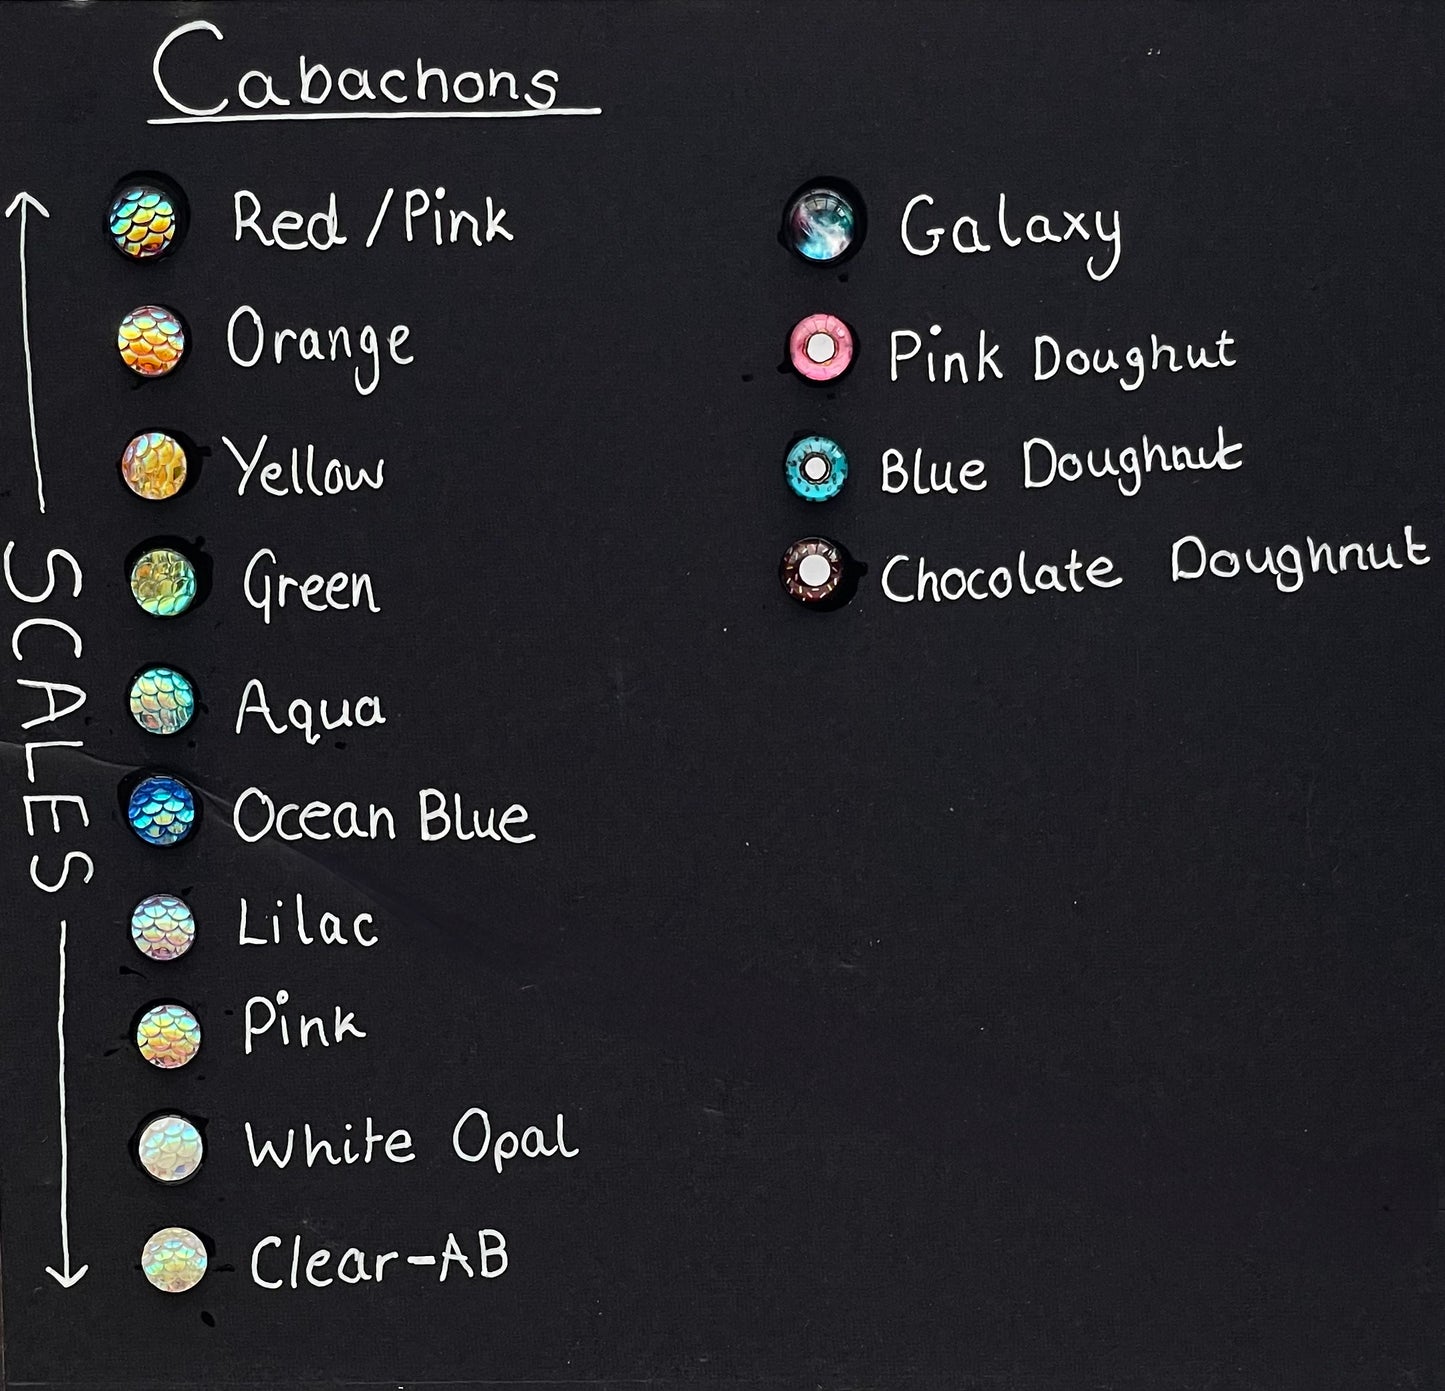 Cabachons
SCALES
Red/Pink
Orange
Yellow
Green
Aqua
Ocean Blue
Lilac
Pink
White Opal
Clear-AB
Galaxy
Pink Doughnut
Blue Doughnut
Chocolate Doughnut